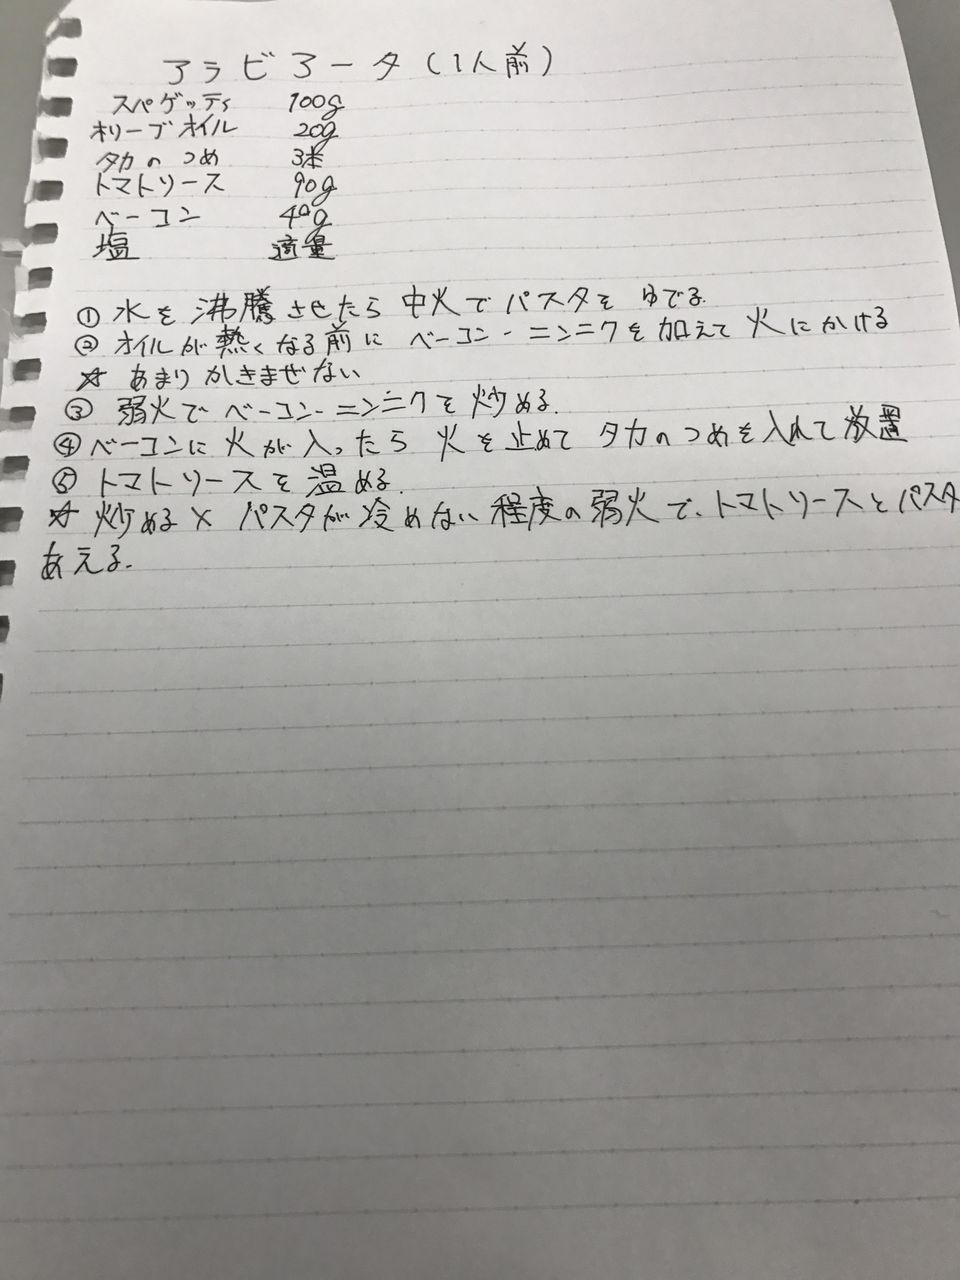 アラビアータ(1人前)
スパゲッティ 100g
オリーブオイル 20g
タカのつめ 3本
トマトソース 90g
ベーコン 40g
塩 適量
① 水を沸騰させたら中火でパスタをゆでる
② オイルが熱くなる前にベーコン・ニンニクを加えて火にかける
☆ あまりかきまぜない
③ 弱火でベーコン・ニンニクを炒める.
④ ベーコンに火が入ったら火を止めてタカのつめを入れて放置
⑤ トマトソースを温める.
☆ 炒める× パスタが冷めない程度の弱火で、トマトソースとパスタ
あえる.